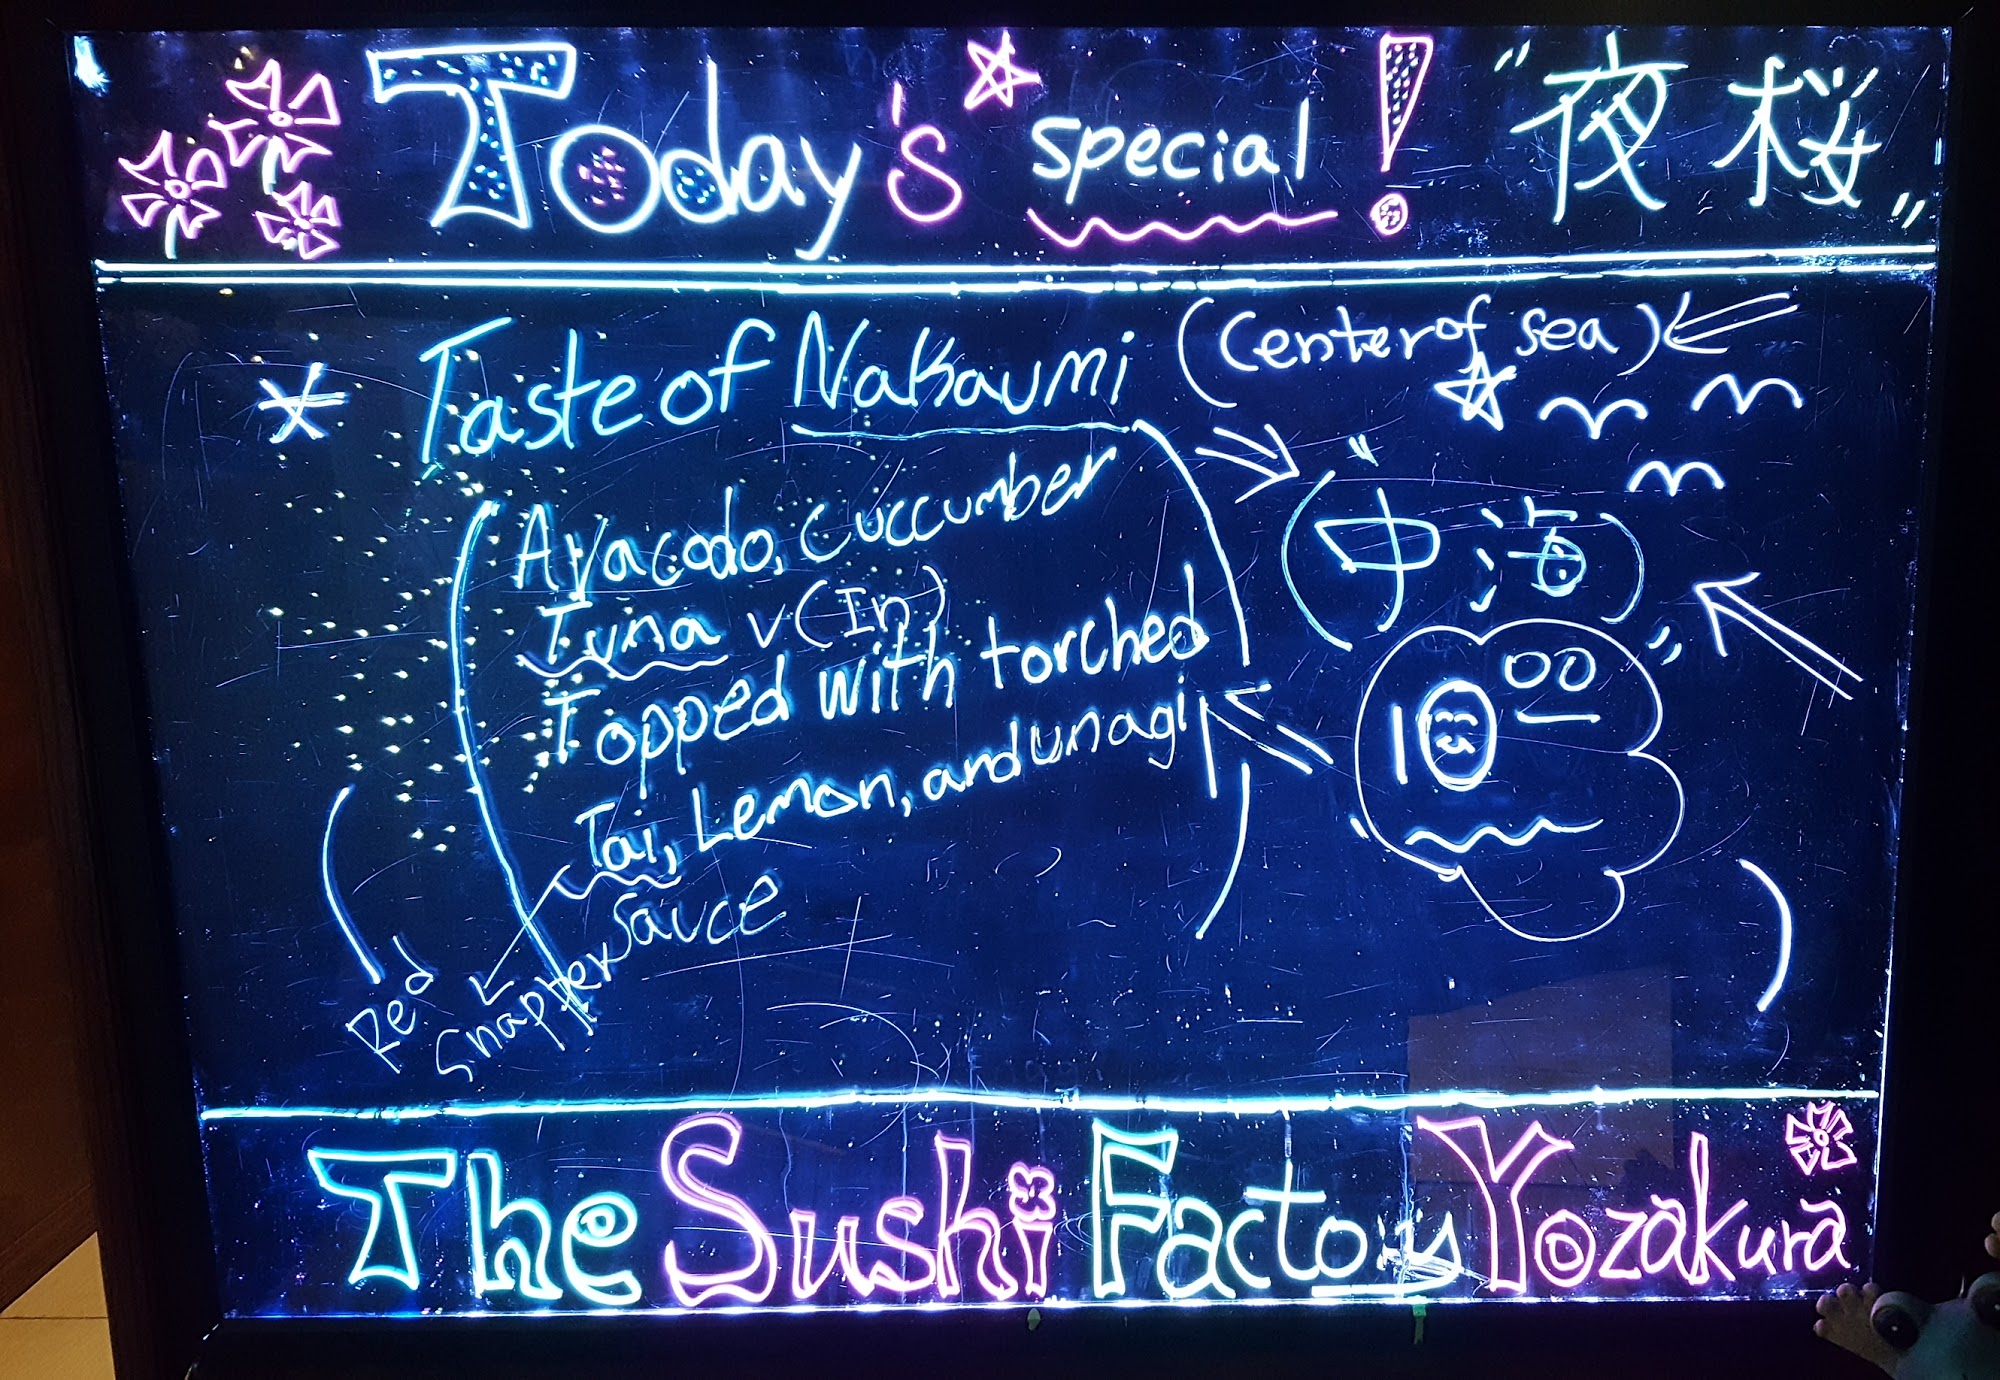 Today's special! "夜桜"
Taste of Nakaumi (Center of sea)
"(中海)"
Avacodo, Cuccumber
Tuna v (In)
Topped with torched
Tai, Lemon, and unagi
Sauce
Red Snapper
10 00
The Sushi Factory Yozakura